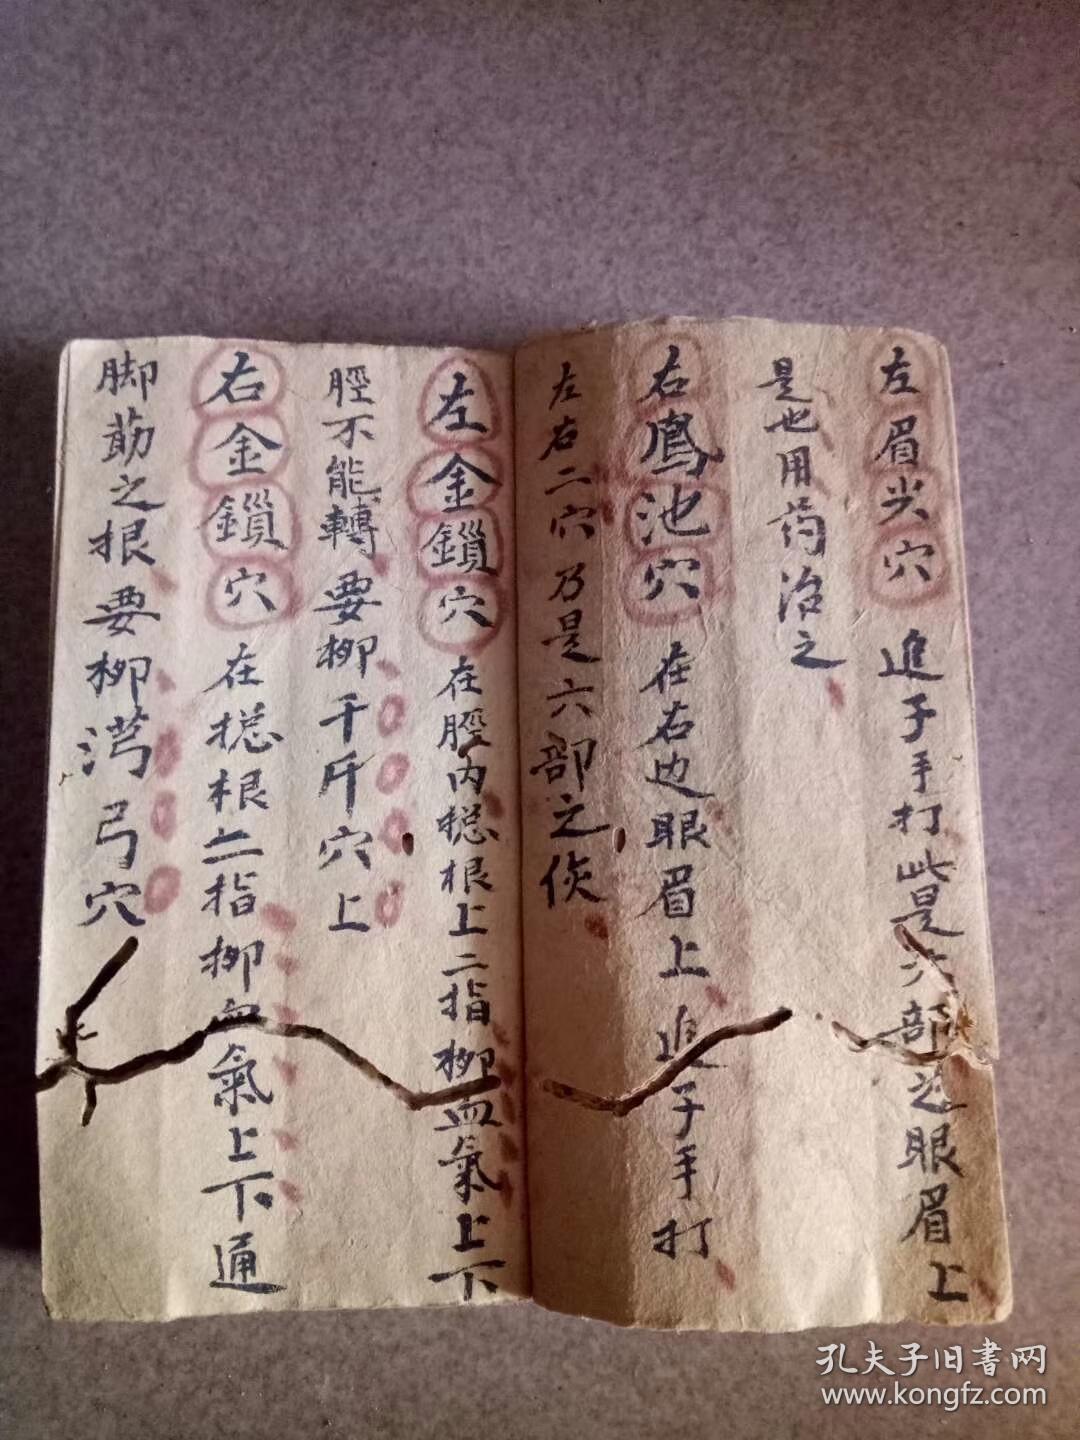 左眉尖穴 進子手打此是六部之眼眉上
是也用药治之
右鳳池穴 在右边眼眉上 進子手打
左右二穴乃是六部之候
左金鎖穴 在脛内捴根上二指柳血氣上下
脛不能轉要柳千斤穴上
右金鎖穴 在捴根二指柳血氣上下通
脚莇之根要柳湾弓穴
孔夫子旧書网
www.kongfz.com